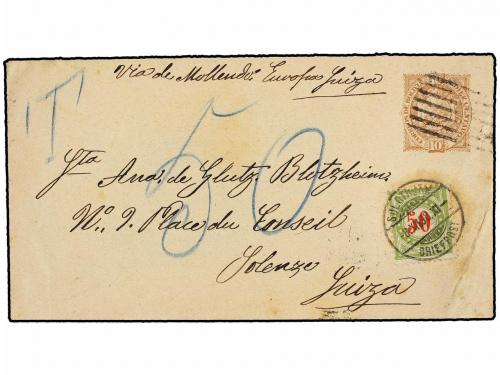 Via de Mollendo Europa Suiza
"T"
10
Sta
Ana. de Glutz Blotzheim
50
No. 9. Place du Conseil
50
BRIEFPOST
Solenze
Suiza